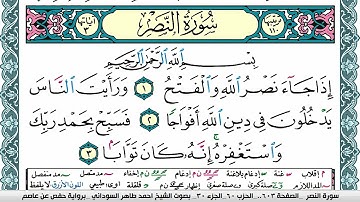 سُورَةُ النَّصْرِ
بِسْمِ اللَّهِ الرَّحْمَٰنِ الرَّحِيمِ
إِذَا جَاءَ نَصْرُ اللَّهِ وَالْفَتْحُ ١ وَرَأَيْتَ النَّاسَ
يَدْخُلُونَ فِي دِينِ اللَّهِ أَفْوَاجًا ٢ فَسَبِّحْ بِحَمْدِ رَبِّكَ
وَاسْتَغْفِرْهُ إِنَّهُ كَانَ تَوَّابًا ٣
سورة النصر الصفحة ٦٠٣... الحزب ٦٠ الجزء ٣٠ بصوت الشيخ احمد طاهر السوداني رواية حفص عن عاصم